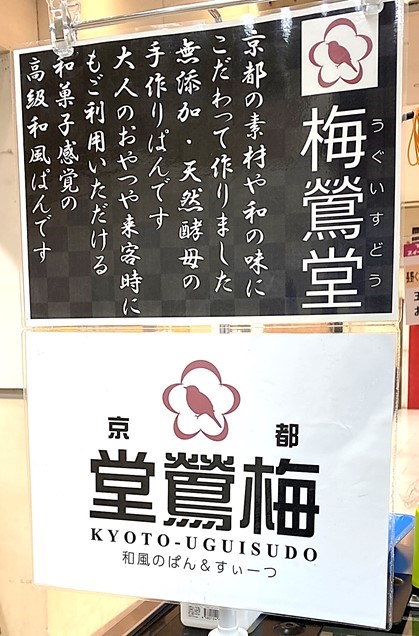 梅鶯堂
うぐいすどう
京都の素材や和の味に
こだわって作りました
無添加・天然酵母の
手作りぱんです
大人のおやつや来客時に
もご利用いただける
和菓子感覚の
高級和風ぱんです
京都
堂鶯梅
KYOTO-UGUISUDO
和風のぱん&すぃーつ